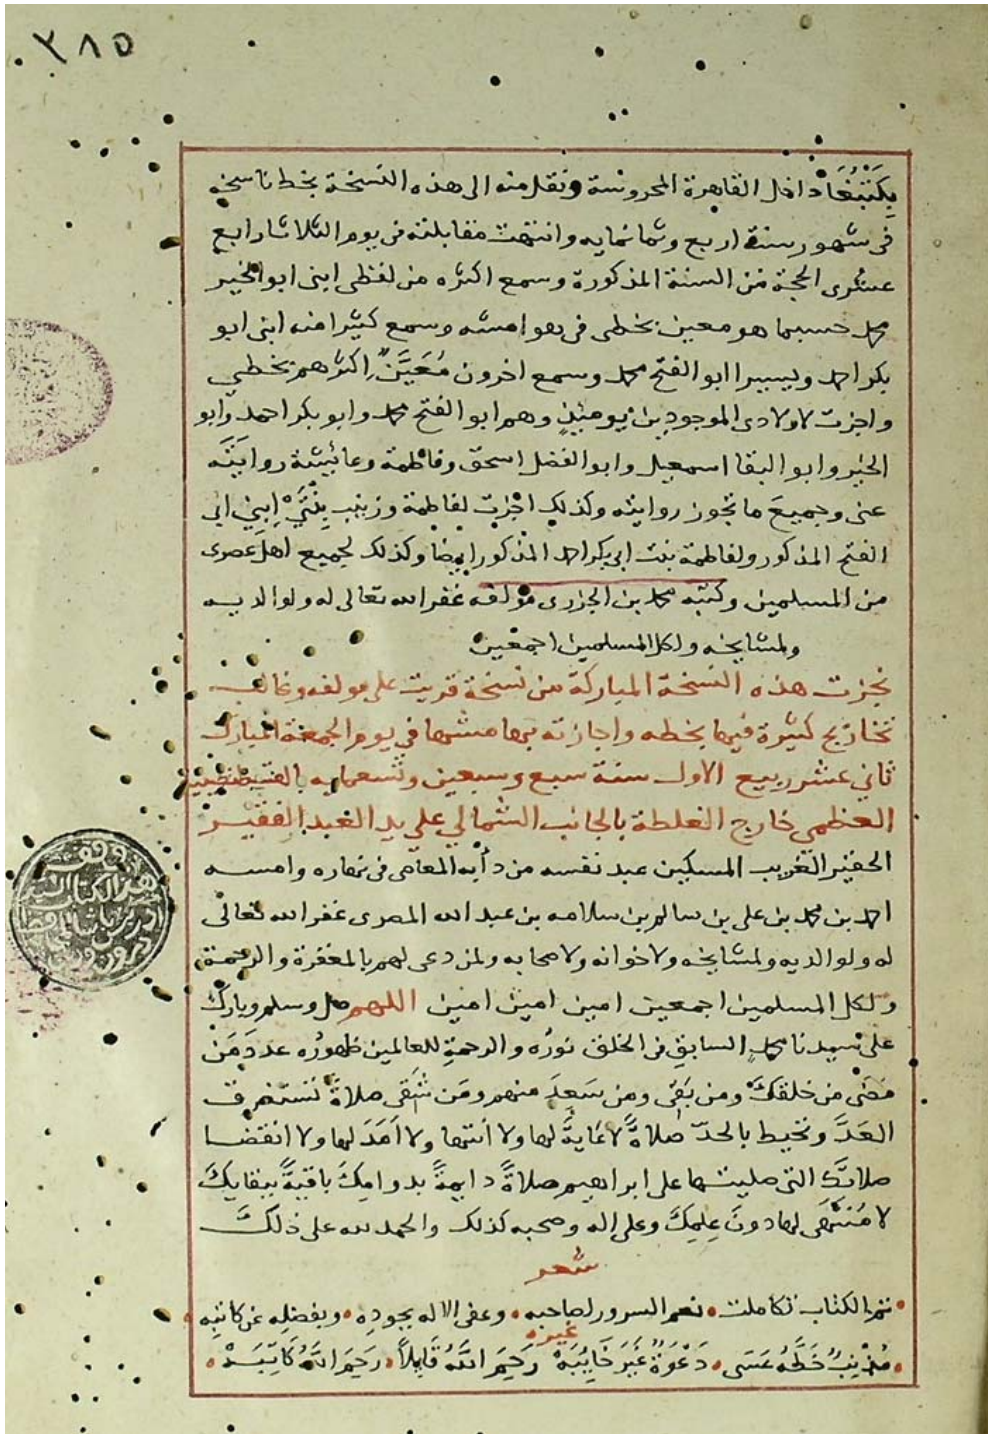 ٣٨٥
بِكَتْبُغَا داخل القاهرة المحروسة ونقل منه الى هذه النسخة بخط ناسخه
فى شهور سنة اربع وثمانمايه وانتهت مقابلته فى يوم الثلاثا رابع
عشرى الحجة من السنة المذكورة وسمع اكثره من لفظى ابنى ابو الخير
محمد حسبما هو معين بخطى فى هوامشه وسمع كثيرا منه ابنى ابو
بكر احمد ويسيرا ابو الفتح محمد وسمع اخرون مُعَيَّنٌ اكثرهم بخطي
واجزت لاولادى الموجودين يومئذٍ وهم ابو الفتح محمد وابو بكر احمد وابو
الخير وابو البقا اسمعيل وابو الفضل اسحق وفاطمة وعائشة روايته
عنى وجميعَ ما تجوز روايته وكذلك اجزت لفاطمة وزينب بِنْتَيْ اِبني ابى
الفتح المذكور ولفاطمة بنت ابى بكر احمد المذكور ايضا وكذلك لجميع اهل عصرى
من المسلمين وكتبه محمد بن الجزرى مؤلفه غفر الله تعالى له ولوالديه
ولمشايخه ولكل المسلمين اجمعين
نجزت هذه النسخة المباركة من نسخة قريت على مولفه وغالب
تخاريج كثيرة فيها بخطه واجازته بها مشها في يوم الجمعة المبارك
ثاني عشر ربيع الاول سنة سبع وسبعين وتسعمايه بالقسطنطينية
العظمي خارج الغلطة بالجانب الشمالي علي يد العبد الفقير
الحقير الغريب المسكين عبد نفسه من دأبه المعاصى فى نهاره وامسه
احمد بن محمد بن على بن سالم بن سلامه بن عبد الله المصرى غفر الله تعالى
له ولوالديه ولمشايخه ولاخوانه ولاصحابه ولمن دعى لهم بالمغفرة والرحمة
ولكل المسلمين اجمعين امين امين امين اللهم صل وسلم وبارك
على سيدنا محمدٍ السابقِ فى الخلق نورُه والرحمةِ للعالمين ظهورُه عددَ مَن
مضَى من خلقكَ ومن بَقَى ومن سَعِدَ منهم ومَن شَقَى صلاةً تستغرق
العَدَّ وتحيط بالحدّ صلاةً لا غايةَ لها ولا انتها ولا اَمَدَ لها ولا انقضا
صلاتكَ التى صليتها على ابراهيم صلاةً دايمةً بدوامِكَ باقيةً ببقايِكَ
لا مُنتَهَى لها دونَ علمِكَ وعلى اله وصحبه كذلك والحمد لله على ذلكَ
شعر
تم الكتاب تكاملت نعم السرور لصاحبه وعفى الاله بجودِه وبفضلِه عن كاتبِه
غيره
مُذْنِبٌ خَطَّهُ عَسَى دَعْوَةٌ غَيْرَ خَايِبَهْ رَحِمَ اللّٰهُ قَايِلاً رَحِمَ اللّٰهُ كَاتِبَهْ
وقف
هذا الكتاب